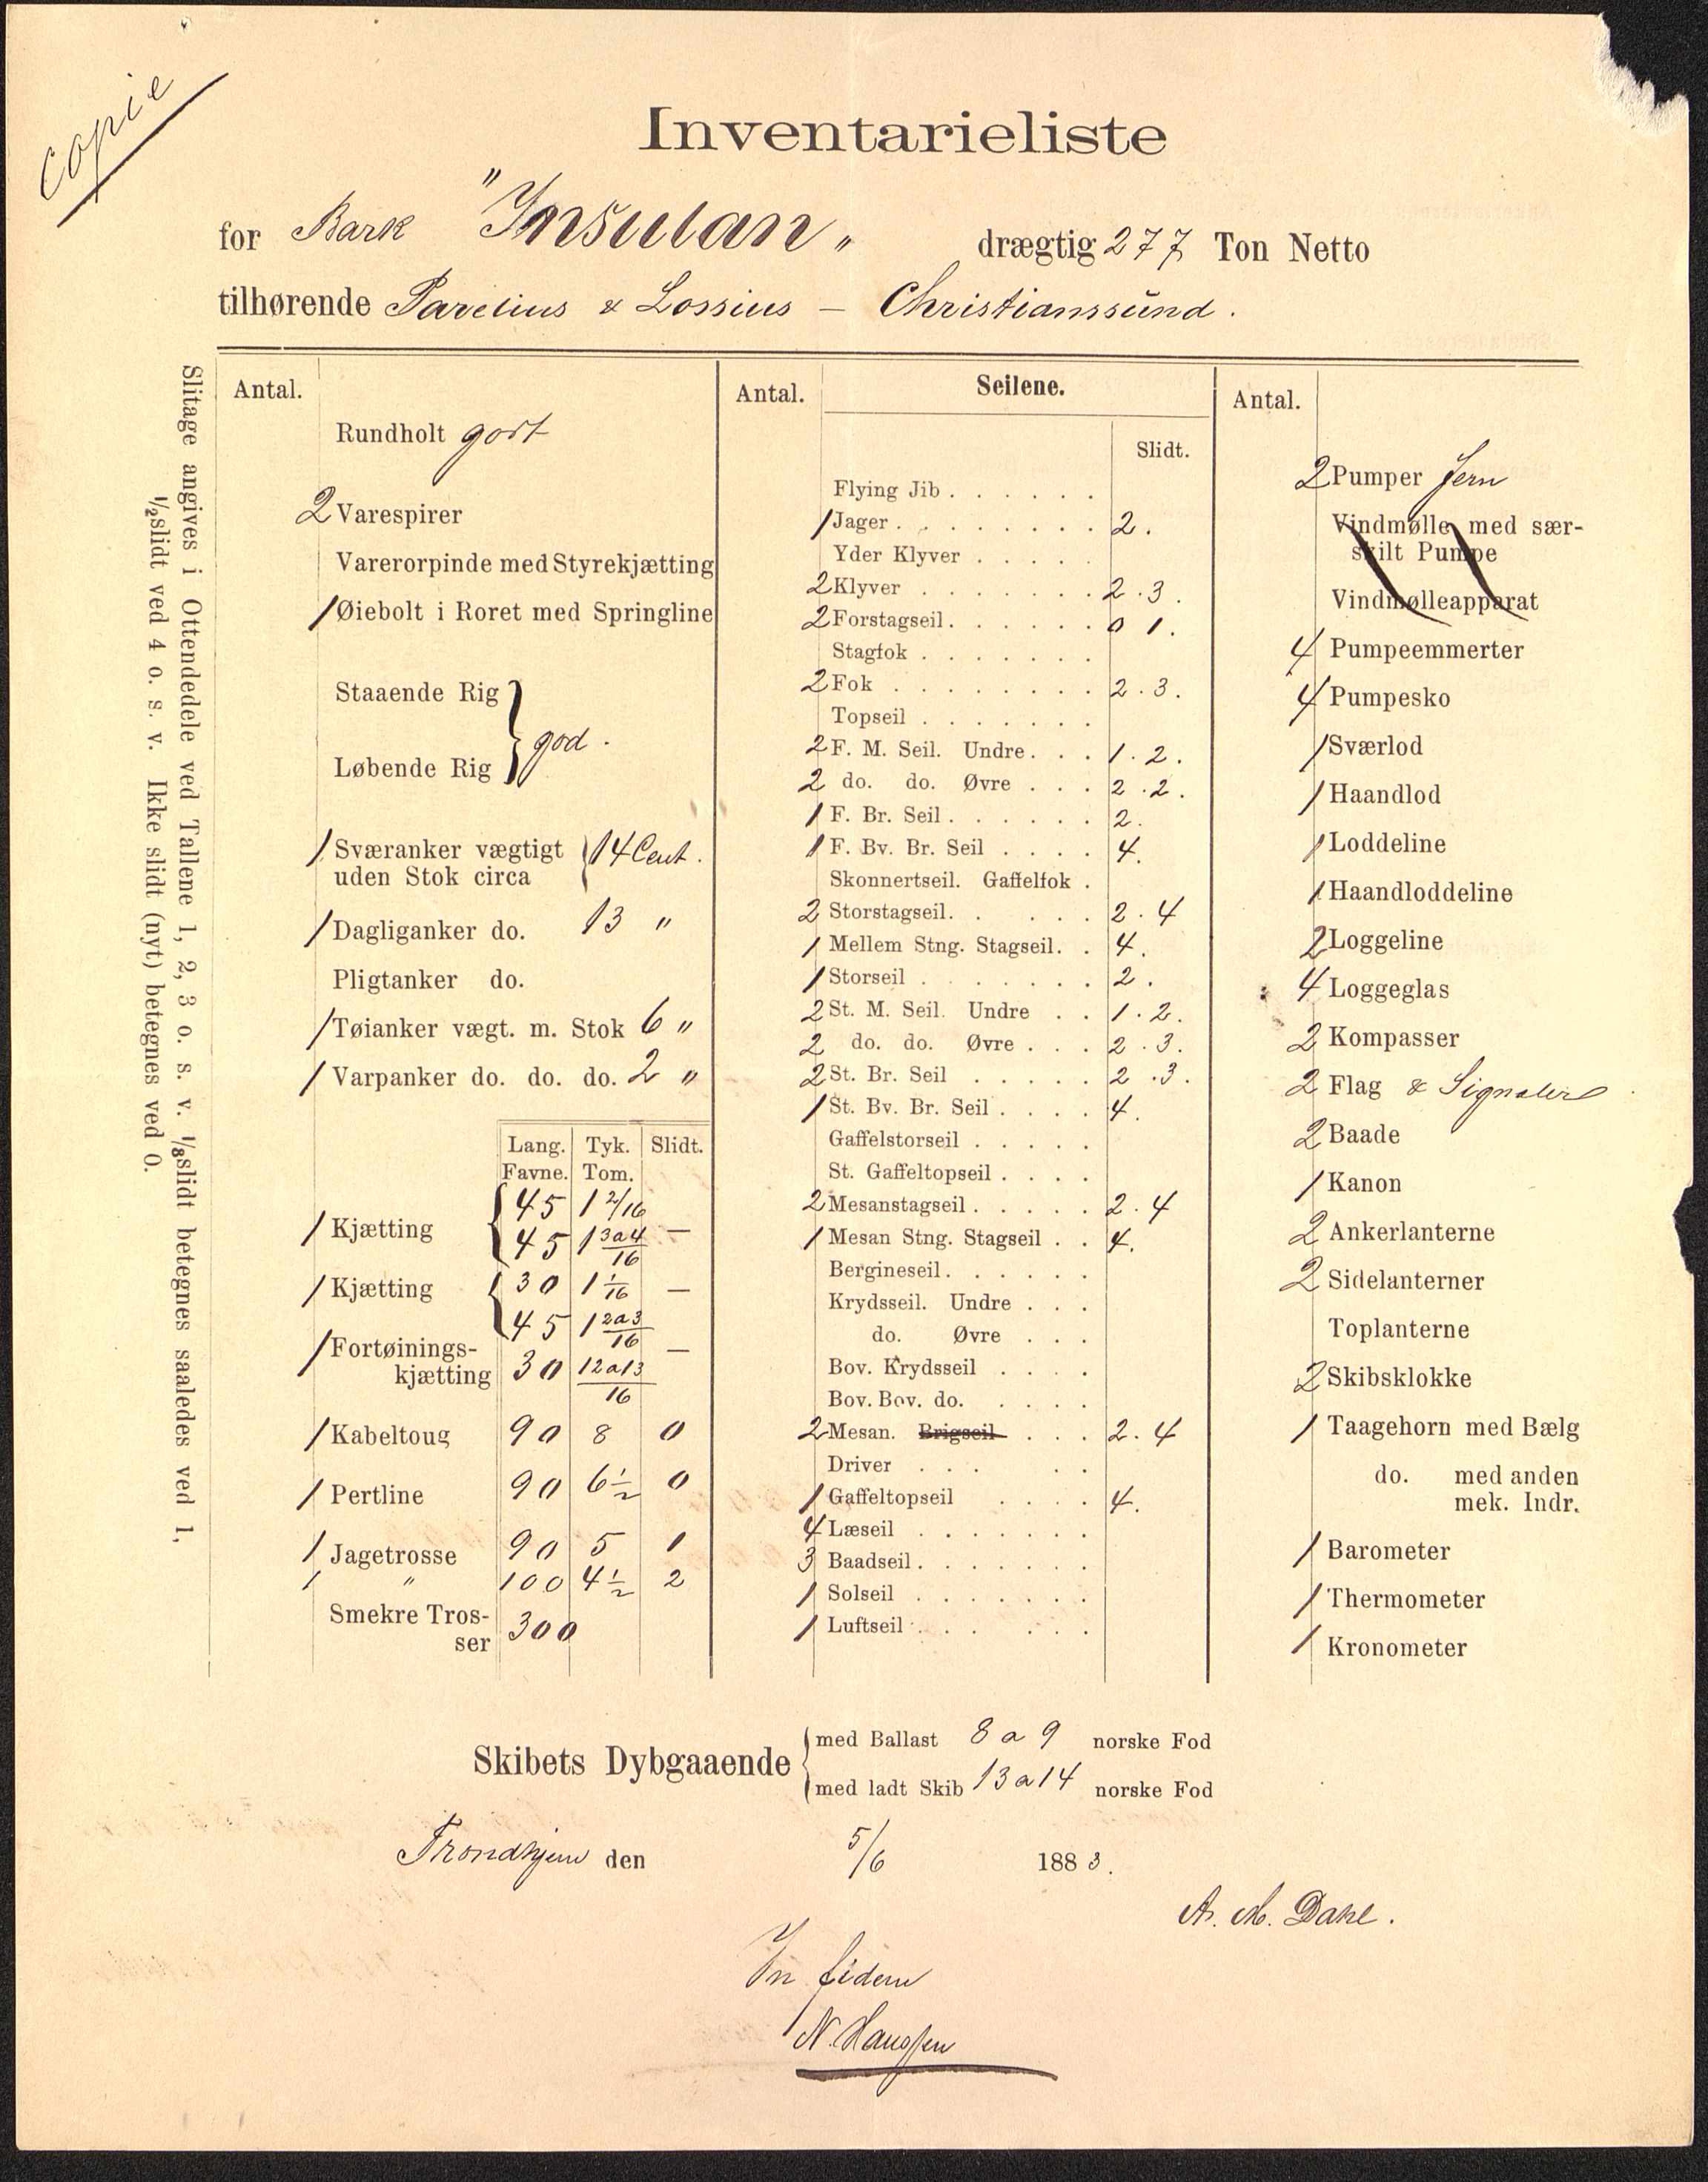 Copie
Inventarieliste
for Bark "Insulan" drægtig 277 Ton Netto
tilhørende Parelius & Lossius – Christianssund.
Slitage angives i Ottendedele ved Tallene 1, 2, 3 o. s. v. 1/8slidt betegnes saaledes ved 1,
1/2slidt ved 4 o. s. v. Ikke slidt (nyt) betegnes ved 0.
Antal.
Rundholt godt
2 Varespirer
Varerorpinde med Styrekjætting
1 Øiebolt i Roret med Springline
Staaende Rig
god.
Løbende Rig
1 Sværanker vægtigt 14 Cent.
uden Stok circa
1 Dagliganker do. 13 "
Pligtanker do.
1 Tøianker vægt. m. Stok 6 "
1 Varpanker do. do. do. 2 "
Lang. Tyk. Slidt.
Favne. Tom.
45 1 2/16
1 Kjætting 45 1 3a4/16 —
1 Kjætting 30 1 1/16 —
45 1 2a3/16
1 Fortøinings- —
kjætting 30 12a13/16
1 Kabeltoug 90 8 0
1 Pertline 90 6 1/2 0
1 Jagetrosse 90 5 1
1 " 100 4 1/2 2
Smekre Tros-
ser 300
Antal. Seilene.
Slidt.
Flying Jib . . . . . .
1 Jager . . . . . . . . 2.
Yder Klyver . . . . .
2 Klyver . . . . . . . 2.3.
2 Forstagseil . . . . . . 0 1.
Stagfok . . . . . . .
2 Fok . . . . . . . . 2.3.
Topseil . . . . . . .
2 F. M. Seil. Undre . . . 1.2.
2 do. do. Øvre . . . 2.2.
1 F. Br. Seil . . . . . . 2.
1 F. Bv. Br. Seil . . . . 4.
Skonnertseil. Gaffelfok .
2 Storstagseil. . . . . . 2.4
1 Mellem Stng. Stagseil. . 4.
1 Storseil . . . . . . . 2.
2 St. M. Seil. Undre . . 1.2.
2 do. do. Øvre . . . 2.3.
2 St. Br. Seil . . . . . 2.3.
1 St. Bv. Br. Seil . . . . 4.
Gaffelstorseil . . . . .
St. Gaffeltopseil . . . .
2 Mesanstagseil . . . . . 2.4
1 Mesan Stng. Stagseil . . 4.
Bergineseil . . . . . .
Krydsseil. Undre . . .
do. Øvre . . .
Bov. Krydsseil . . . .
Bov. Bov. do. . . . .
2 Mesan. Brigseil . . . 2.4
Driver . . . . .
1 Gaffeltopseil . . . . 4.
4 Læseil . . . . . . .
3 Baadseil . . . . . . .
1 Solseil . . . . . . .
1 Luftseil . . . . . .
Antal.
2 Pumper Jern
Vindmølle med sær-
skilt Pumpe
Vindmølleapparat
4 Pumpeemmerter
4 Pumpesko
1 Sværlod
1 Haandlod
1 Loddeline
1 Haandloddeline
2 Loggeline
4 Loggeglas
2 Kompasser
2 Flag & Signaler
2 Baade
1 Kanon
2 Ankerlanterne
2 Sidelanterner
Toplanterne
2 Skibsklokke
1 Taagehorn med Bælg
do. med anden
mek. Indr.
1 Barometer
1 Thermometer
1 Kronometer
Skibets Dybgaaende
med Ballast 8 a 9 norske Fod
med ladt Skib 13 a 14 norske Fod
Trondhjem den 5/6 1883.
A. M. Dahl.
In fidem
N. Hanssen